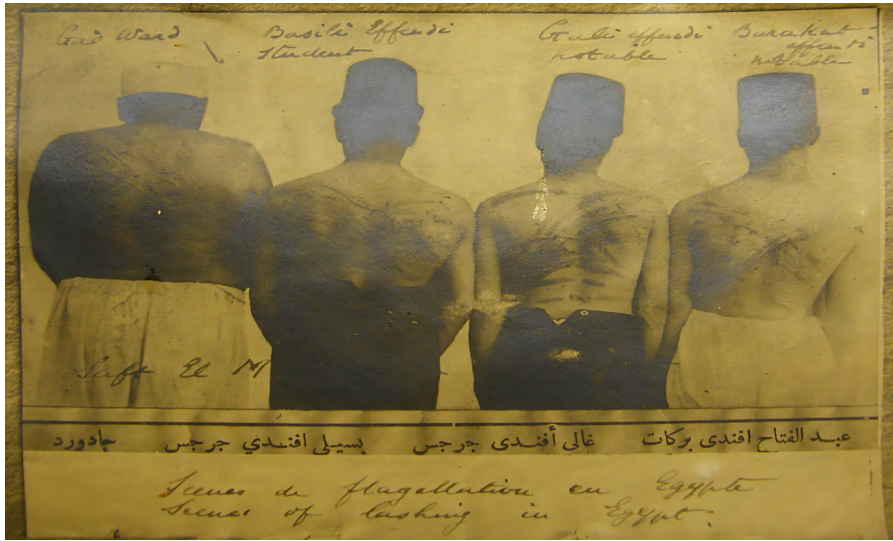 Gad Ward
Basili Effendi
student
Gali effendi
notable
Barakat
effendi
notable
Saft El M
عبد الفتاح افندى بركات غالى أفندى جرجس بسيلى افندي جرجس جادورد
Scenes de flagellation en Egypte
Scenes of lashing in Egypt.